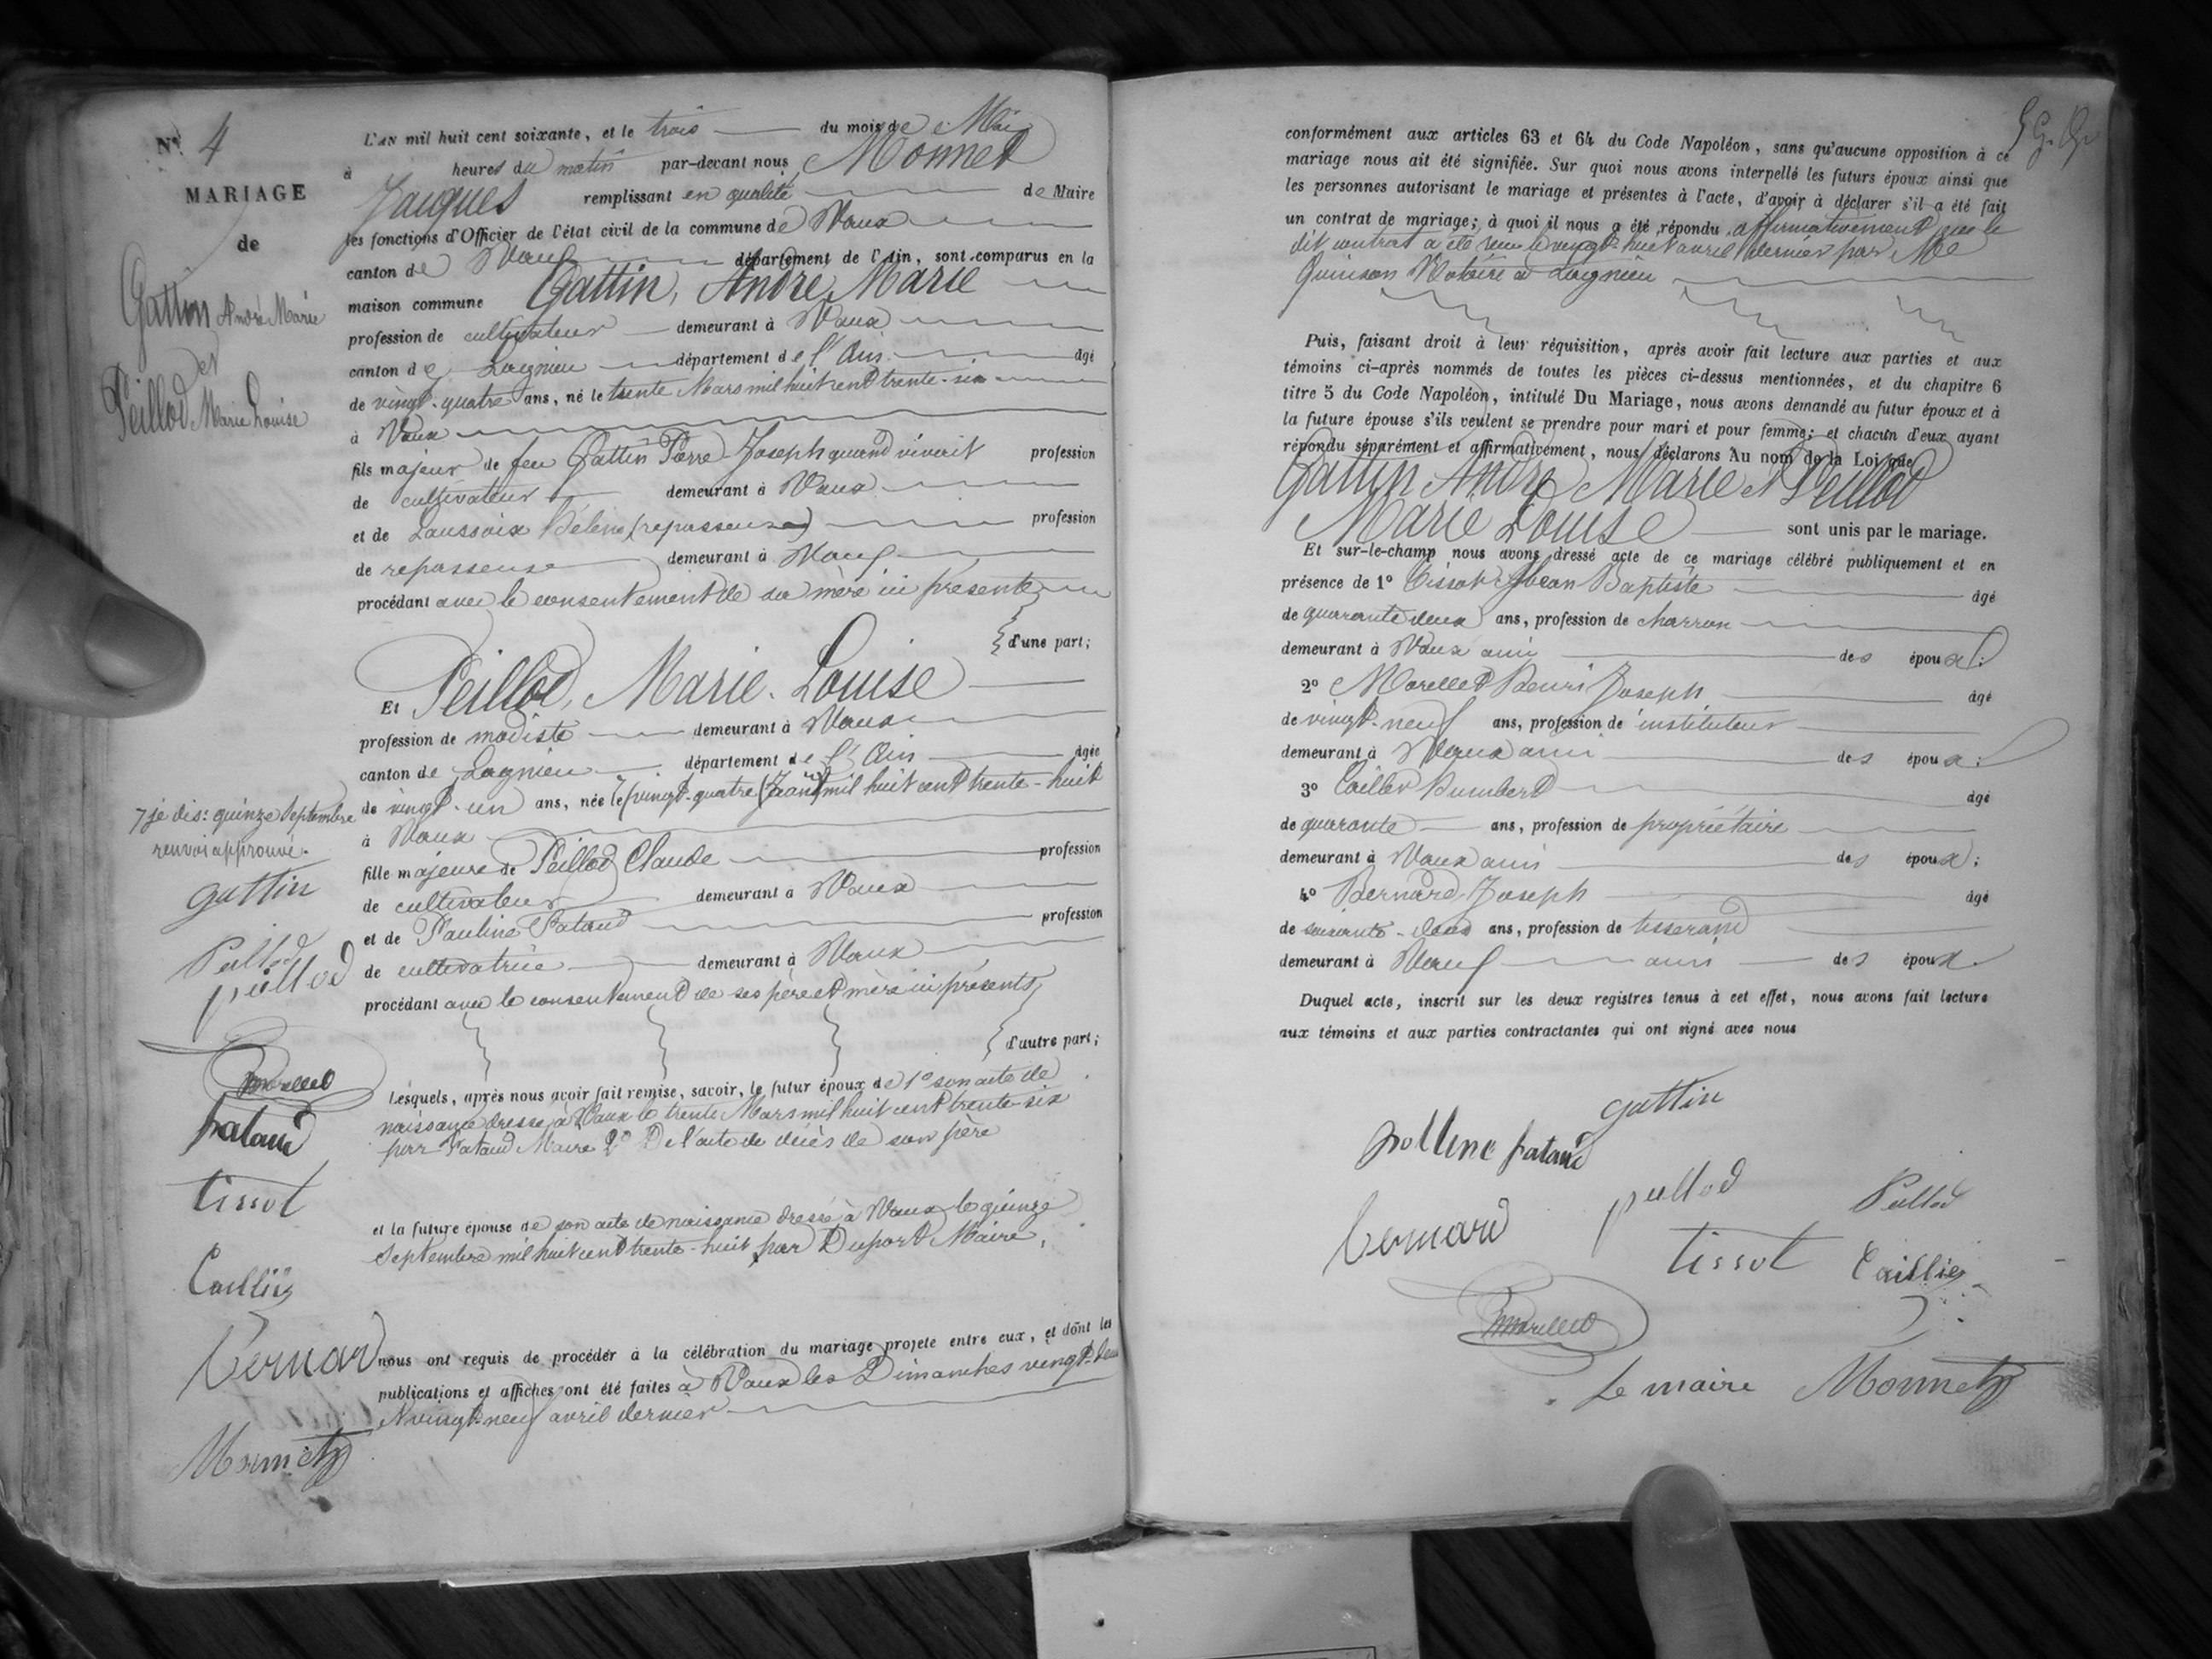 N° 4
MARIAGE
de
Gattin André Marie
et
Peillod Marie Louise
7 je dis: quinze Septembre
renvoi approuvé.
gattin
Peillod
peillod
Morellet
pataud
tissot
Caillier
Bernard
Monnet
L'AN mil huit cent soixante, et le trois du mois de Mai
à heures du matin par-devant nous, Monnet
Jacques remplissant en qualité de Maire
les fonctions d'Officier de l'état civil de la commune de Vaux
canton de Vaux département de l'Ain, sont comparus en la
maison commune Gattin, André Marie
profession de cultivateur demeurant à Vaux
canton de Lagnieu département de l'Ain âgé
de vingt-quatre ans, né le trente Mars mil huit cent trente-six
à Vaux
fils majeur de feu Gattin Pierre-Joseph quand vivait profession
de cultivateur demeurant à Vaux
et de Laussoix Hélène (repasseuse) profession
de repasseuse demeurant à Vaux
procédant avec le consentement de sa mère ici présente
d'une part;
Et Peillod, Marie-Louise
profession de modiste demeurant à Vaux
canton de Lagnieu département de l'Ain âgée
de vingt-un ans, née le 7 (vingt-quatre Juin) mil huit cent trente-huit
à Vaux
fille majeure de Peillod Claude profession
de cultivateur demeurant à Vaux
et de Pauline Pataud profession
de cultivatrice demeurant à Vaux
procédant avec le consentement de ses père et mère ici présents
d'autre part;
Lesquels, après nous avoir fait remise, savoir, le futur époux de 1° son acte de
naissance dressé à Vaux le trente Mars mil huit cent trente-six
par Pataud Maire 2° De l'acte de décès de son père
et la future épouse de son acte de naissance dressé à Vaux le quinze
Septembre mil huit cent trente-huit par Duport Maire,
nous ont requis de procéder à la célébration du mariage projeté entre eux, et dont les
publications et affiches ont été faites à Vaux les Dimanches vingt-deux
et vingt-neuf avril dernier
conformément aux articles 63 et 64 du Code Napoléon, sans qu'aucune opposition à ce
mariage nous ait été signifiée. Sur quoi nous avons interpellé les futurs époux ainsi que
les personnes autorisant le mariage et présentes à l'acte, d'avoir à déclarer s'il a été fait
un contrat de mariage; à quoi il nous a été répondu affirmativement que le
dit contrat a été reçu le vingt-huit avril dernier par Me
Quinson Notaire à Lagnieu
Puis, faisant droit à leur réquisition, après avoir fait lecture aux parties et aux
témoins ci-après nommés de toutes les pièces ci-dessus mentionnées, et du chapitre 6
titre 5 du Code Napoléon, intitulé Du Mariage, nous avons demandé au futur époux et à
la future épouse s'ils veulent se prendre pour mari et pour femme; et chacun d'eux ayant
répondu séparément et affirmativement, nous déclarons Au nom de la Loi que
Gattin André Marie et Peillod
Marie Louise sont unis par le mariage.
Et sur-le-champ nous avons dressé acte de ce mariage célébré publiquement et en
présence de 1° Tissot Jean-Baptiste âgé
de quarante deux ans, profession de charron
demeurant à Vaux ami des époux;
2° Morellet Henri Joseph âgé
de vingt-neuf ans, profession de instituteur
demeurant à Vaux ami des époux;
3° Caillier Humbert âgé
de quarante ans, profession de propriétaire
demeurant à Vaux ami des époux;
4° Bernard Joseph âgé
de soixante-deux ans, profession de tisserand
demeurant à Vaux ami des époux.
Duquel acte, inscrit sur les deux registres tenus à cet effet, nous avons fait lecture
aux témoins et aux parties contractantes qui ont signé avec nous
gattin
polline pataud
peillod
Peillod
Bernard
tissot
Caillier
Morellet
Le maire Monnet